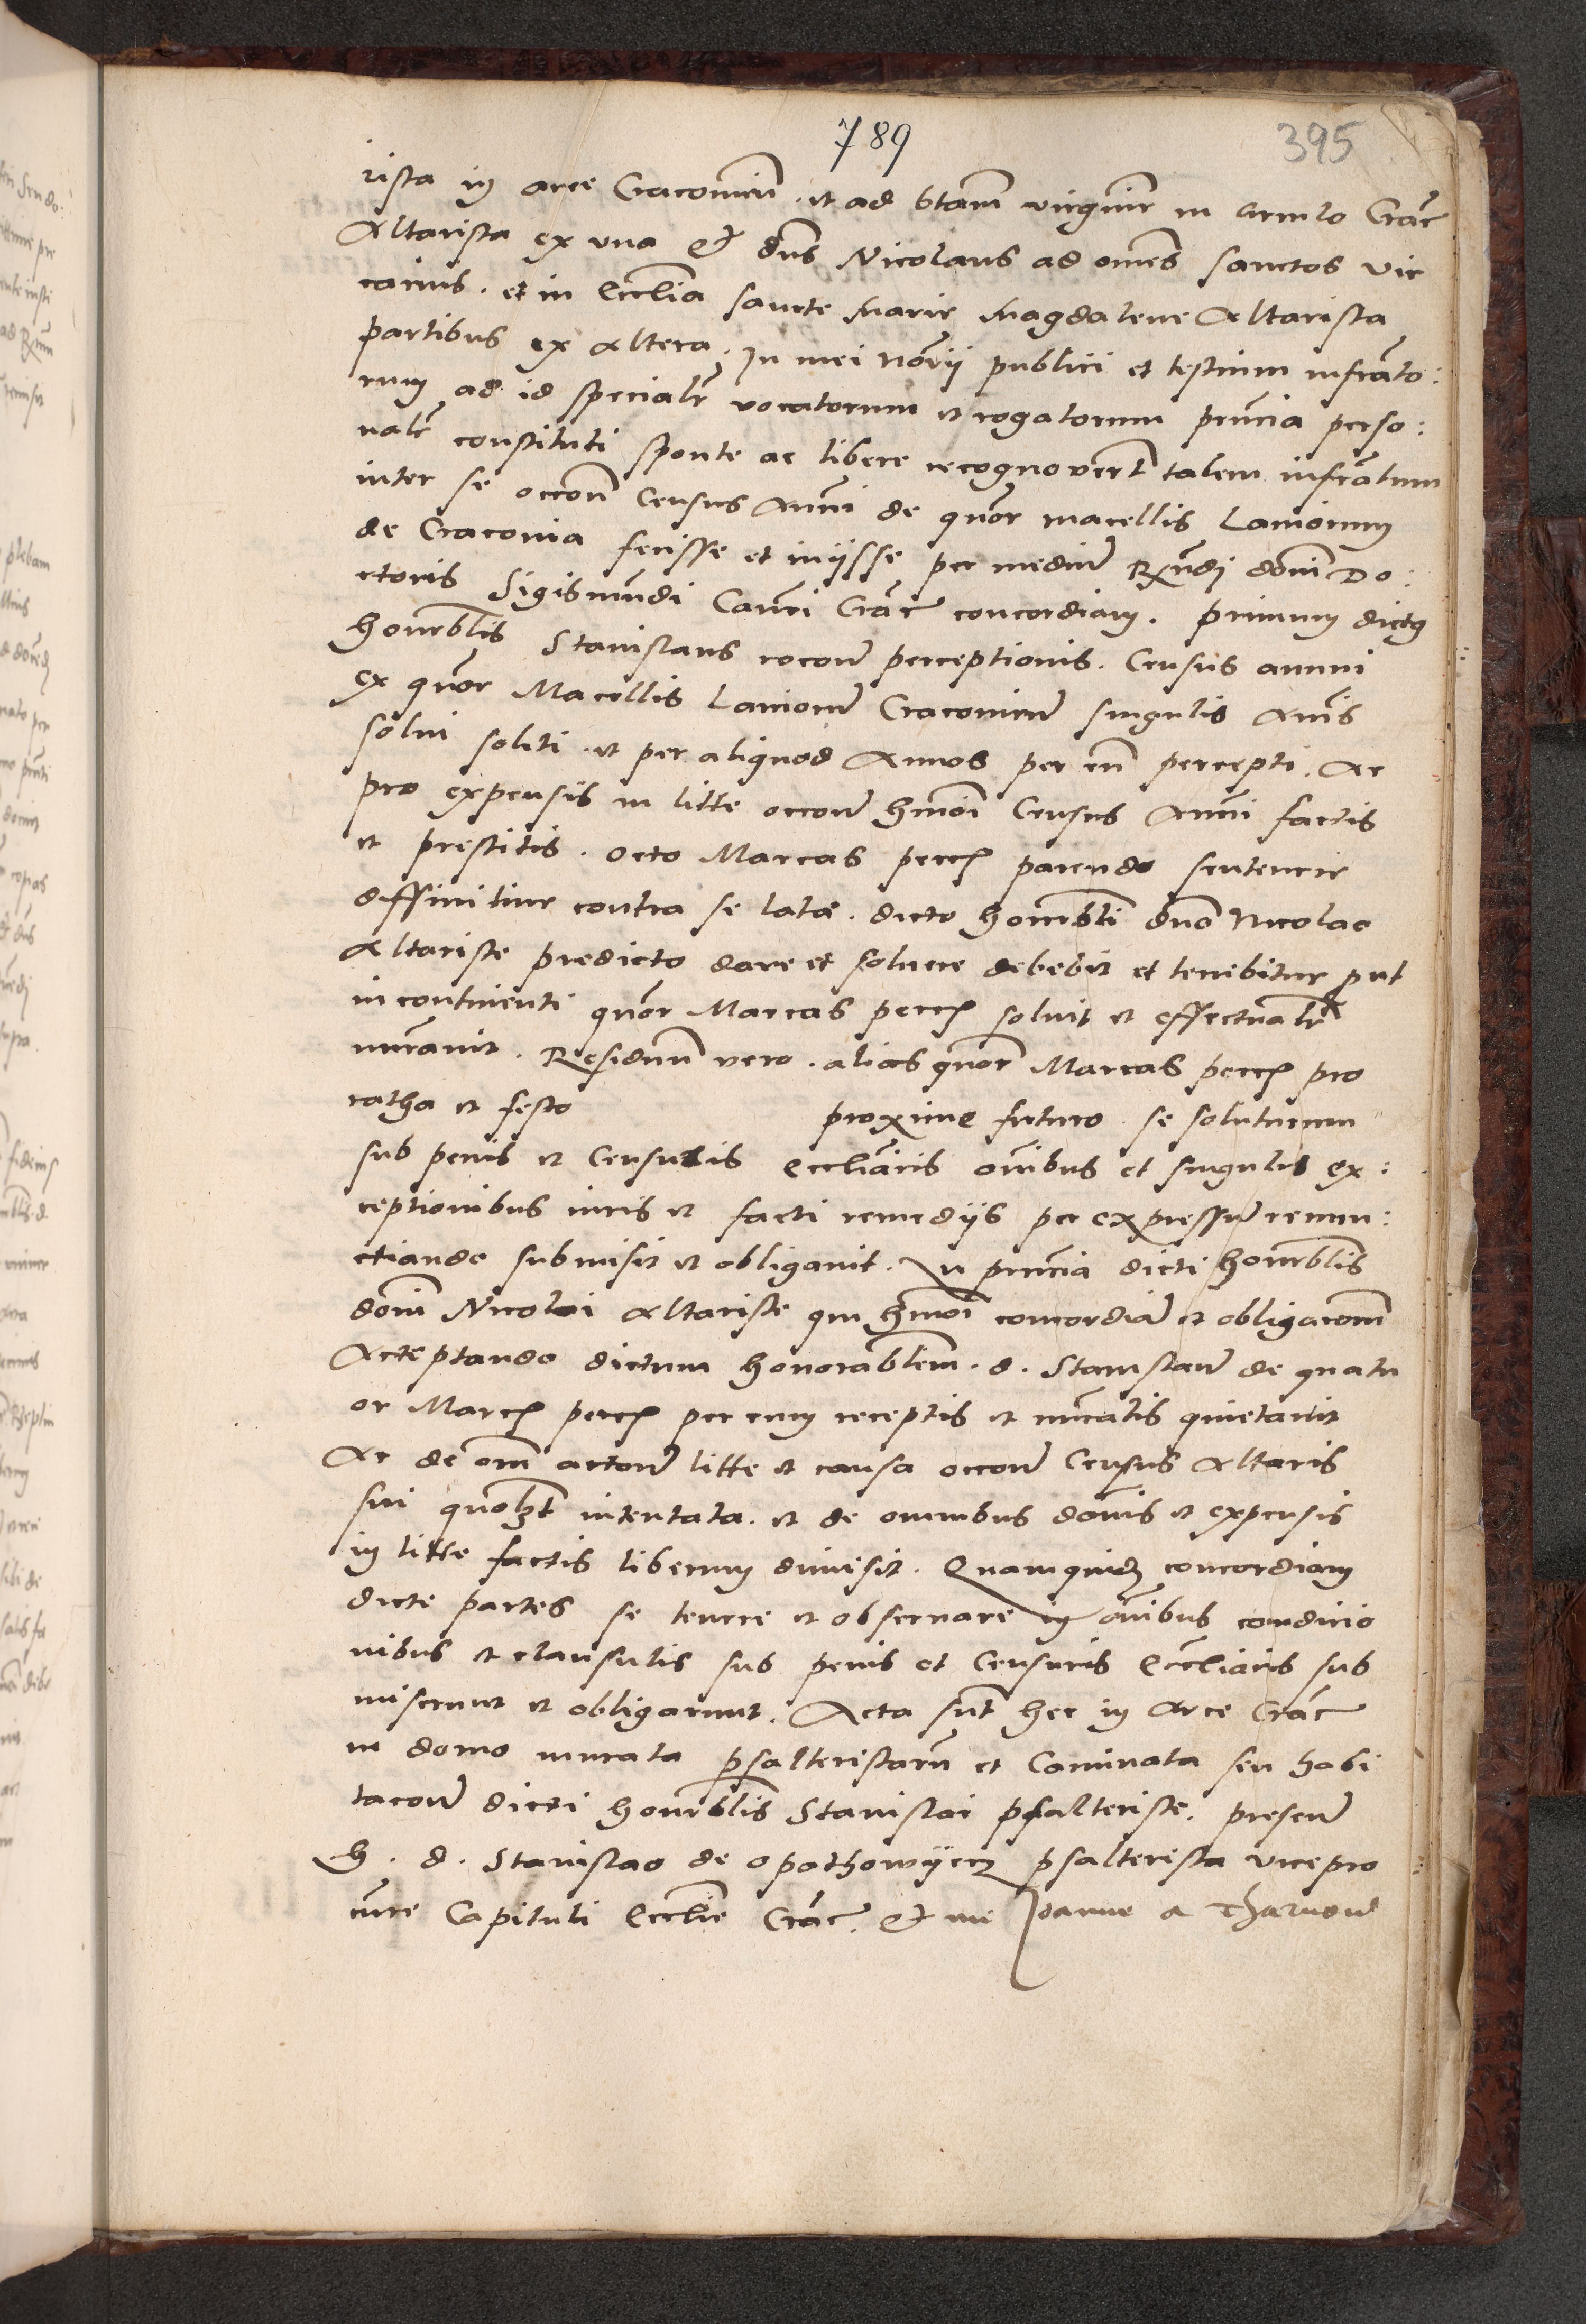 789
395
rista in arce Cracovień. et ad btām virginē in circulo Crāc
Altarista ex una & dns Nicolaus ad omēs sanctos vic
carius. et in Ecclīa sancte Marie Magdalene Altarista
partibus ex altera. In mei Nōrij publici et testium infrāto:
rum ad id specialr vocatorum et rogatorum prn̄cia perso:
nalr constituti sponte ac libere recognovert̄ talem infrātum
inter se occōn Census Anni de quor macellis Laniorum
de Cracovia fecisse et inijsse per mediū Rx̄ndi domi Do:
ctoris Sigismūndi Can̄ci Crāc concordiam. primum dictus
honorblis Stanislaus rōcōn perceptionis. Census annui
ex quor Macellis Lanioru Cracovien singulis Anīs
solvi soliti et per aliquod Annos per eū percepti. Ac
pro expensis in litte occōn hmōi Census Annī factis
et prestitis. octo Marcas peccn̄ parendo sentencie
diffinitive contra se late. dicto honorblī dno Nicolao
Altariste predicto dare et solvere debebit et tenebitur put
in continenti quor Marcas peccn̄ solvit et effectualr
nu͞ravit. Residuum vero. alias quor Marcas peccn̄ pro
ratha et festo proxime futuro se soluturum
sub penis et Censuris eccliācis oībus et singulis ex:
ceptionibus iuris et facti remedijs per expressum renun:
ctiando submisit et obligavit. In prn̄cia dicti honorblis
domī Nicolai Altariste qui hmōi concordiā et obligacōm
Acceptando dictum honorablem. d. Stanislau de quatu
or Marcn̄ peccn̄ per eum receptis et nu͞ratis quietavit
Ac de om̄i actōn litte et causa occōn Census Altaris
sui quolzt̄ intentata. et de omnibus dāmis et expensis
in litte factis liberum dimisit. Quamquidem concordiam
dicte partes se tenere et observare in oībus condicio
nibus et clausulis sub penis et Censuris Eccliācis sub
miserunt et obligarunt. Acta sūt hec in Arce Crāc
in domo murata psalteristarū et Caminata seu habi
tacōn dicti honorblis Stanislai psalteriste. presen
h. d. Stanislao de opathowijecz psalterista vicepro
cure Capituli Ecclie Crāc. & me Joanne a Tharnow